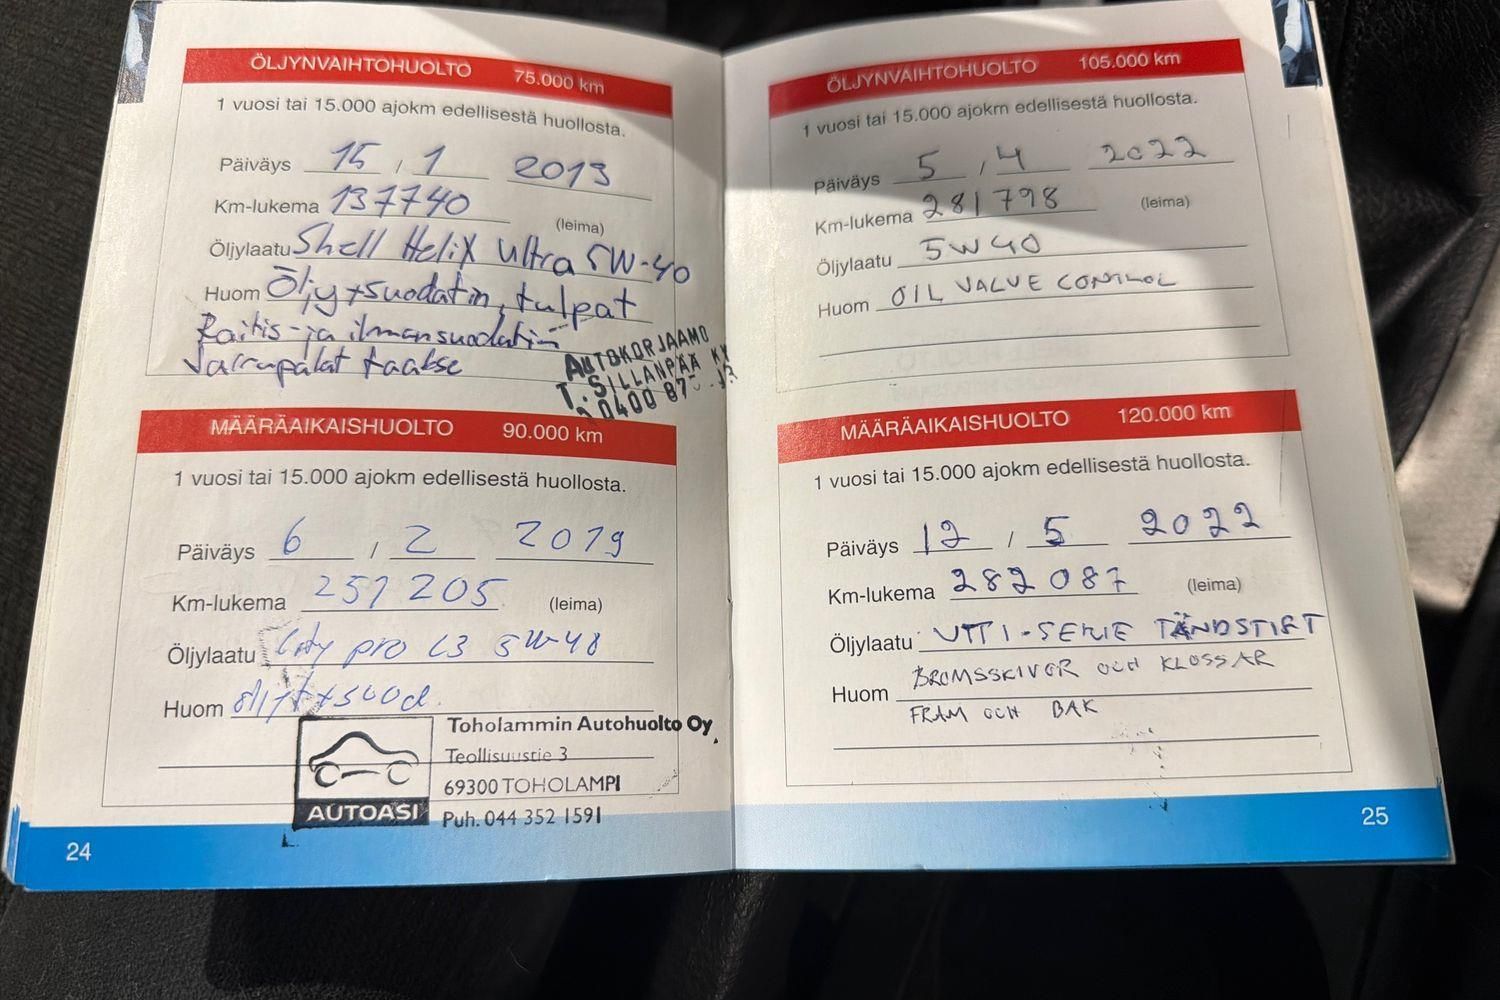 ÖLJYNVAIHTOHUOLTO 75.000 km
1 vuosi tai 15.000 ajokm edellisestä huollosta.
Päiväys 15 / 1 2013
Km-lukema 137740
(leima)
Öljylaatu Shell Helix Ultra 5W-40
Huom Öljy+suodatin, tulpat
Raitis- ja ilmansuodatin
Jarrupalat taakse
AUTOKORJAAMO
T. SILLANPÄÄ
0400 87
MÄÄRÄAIKAISHUOLTO 90.000 km
1 vuosi tai 15.000 ajokm edellisestä huollosta.
Päiväys 6 / 2 2019
Km-lukema 251 205 (leima)
Öljylaatu pro 5W-40
Huom
Toholammin Autohuolto Oy
Teollisuustie 3
69300 TOHOLAMPI
AUTOASI Puh. 044 352 1591
24
ÖLJYNVAIHTOHUOLTO 105.000 km
1 vuosi tai 15.000 ajokm edellisestä huollosta.
Päiväys 5 / 4 2022
Km-lukema 281798 (leima)
Öljylaatu 5W40
Huom OIL VALVE CONTROL
MÄÄRÄAIKAISHUOLTO 120.000 km
1 vuosi tai 15.000 ajokm edellisestä huollosta.
Päiväys 12 / 5 2022
Km-lukema 282 087 (leima)
Öljylaatu VTTI-SERIE TÄNDSTIFT
BROMSSKIVOR OCH KLOSSAR
Huom
FRAM OCH BAK
25